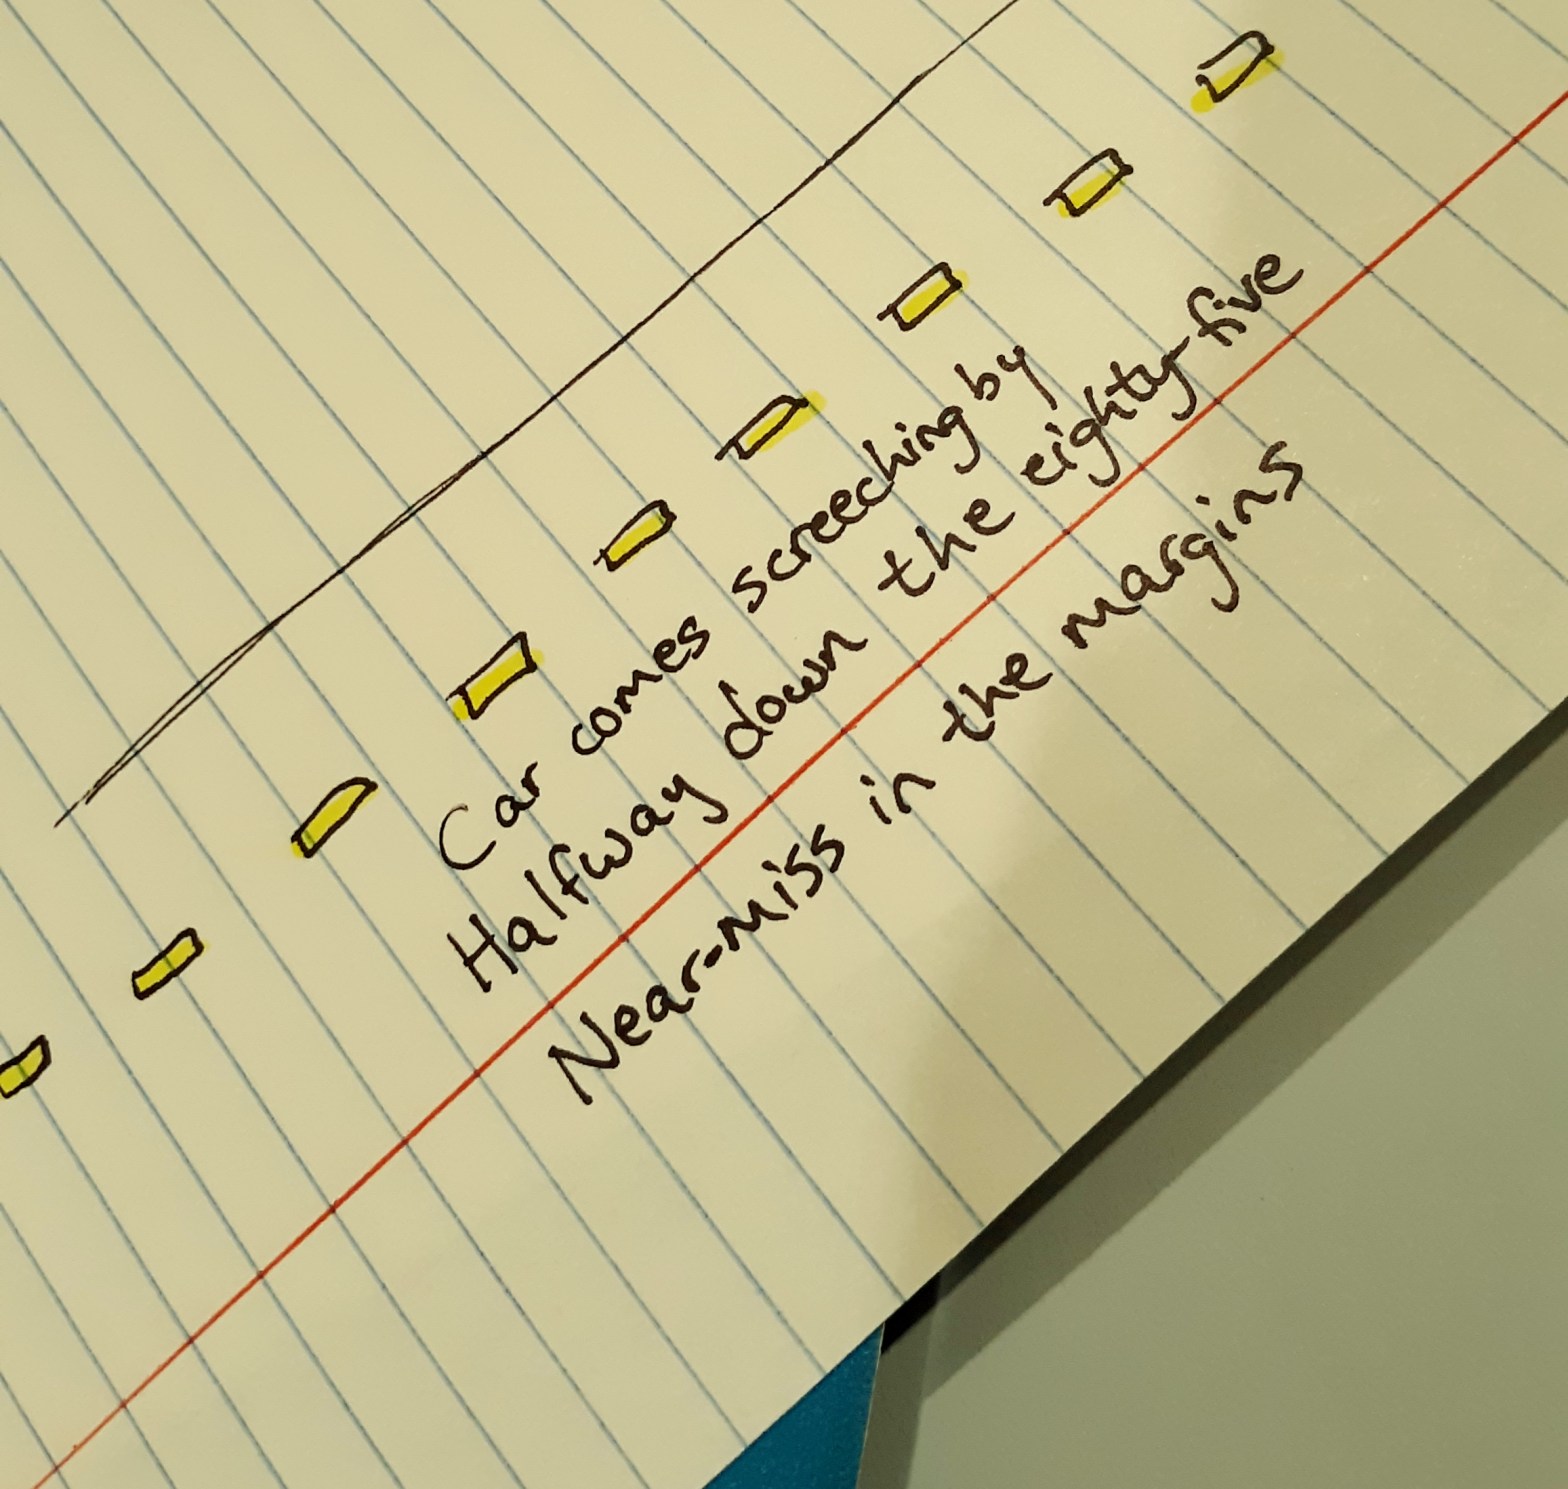 Car comes screeching by
Halfway down the eighty-five
Near-miss in the margins